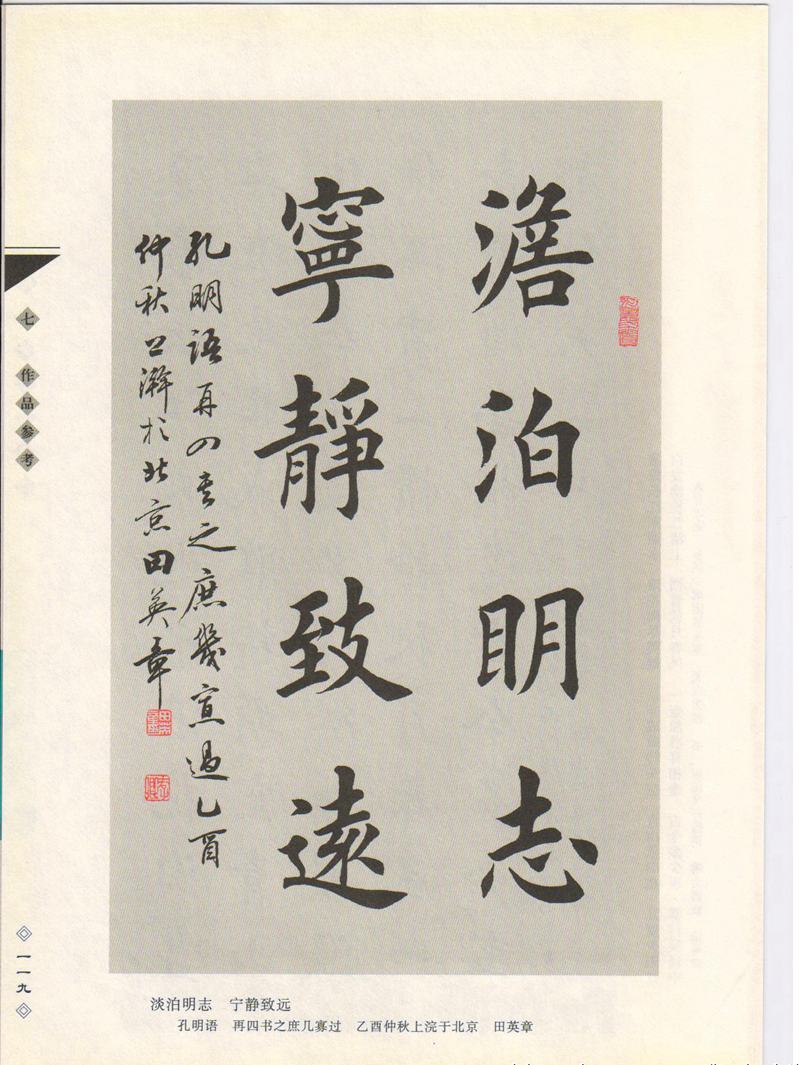 澹泊明志
寧靜致遠
孔明語再四書之庶幾寡過乙酉
仲秋上澣於北京田英章
七 作品参考
一一九
淡泊明志 宁静致远
孔明语 再四书之庶几寡过 乙酉仲秋上浣于北京 田英章